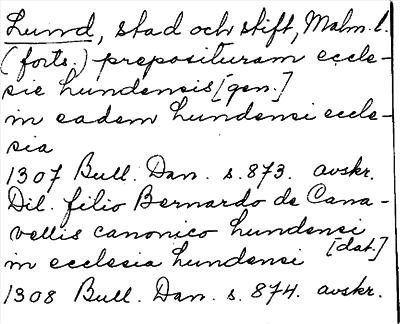 Lund, stad och stift, Malm. l.
(forts.) preposituram eccle-
sie Lundensis [gen.]
in eadem Lundensi eccle-
sia
1307 Bull. Dan. s. 873. avskr.
Dil. filio Bernardo de Cana-
vellis canonico Lundensi
in ecclesia Lundensi [dat.]
1308 Bull. Dan. s. 874. avskr.